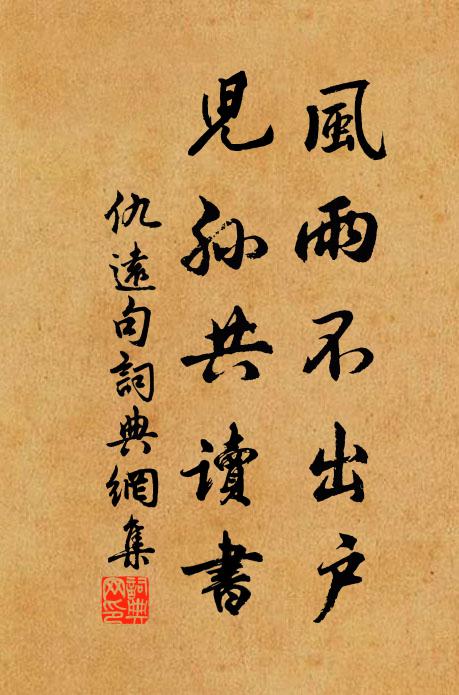 風雨不出戶
兒孫共讀書
仇遠句詞典網集
詞典網印